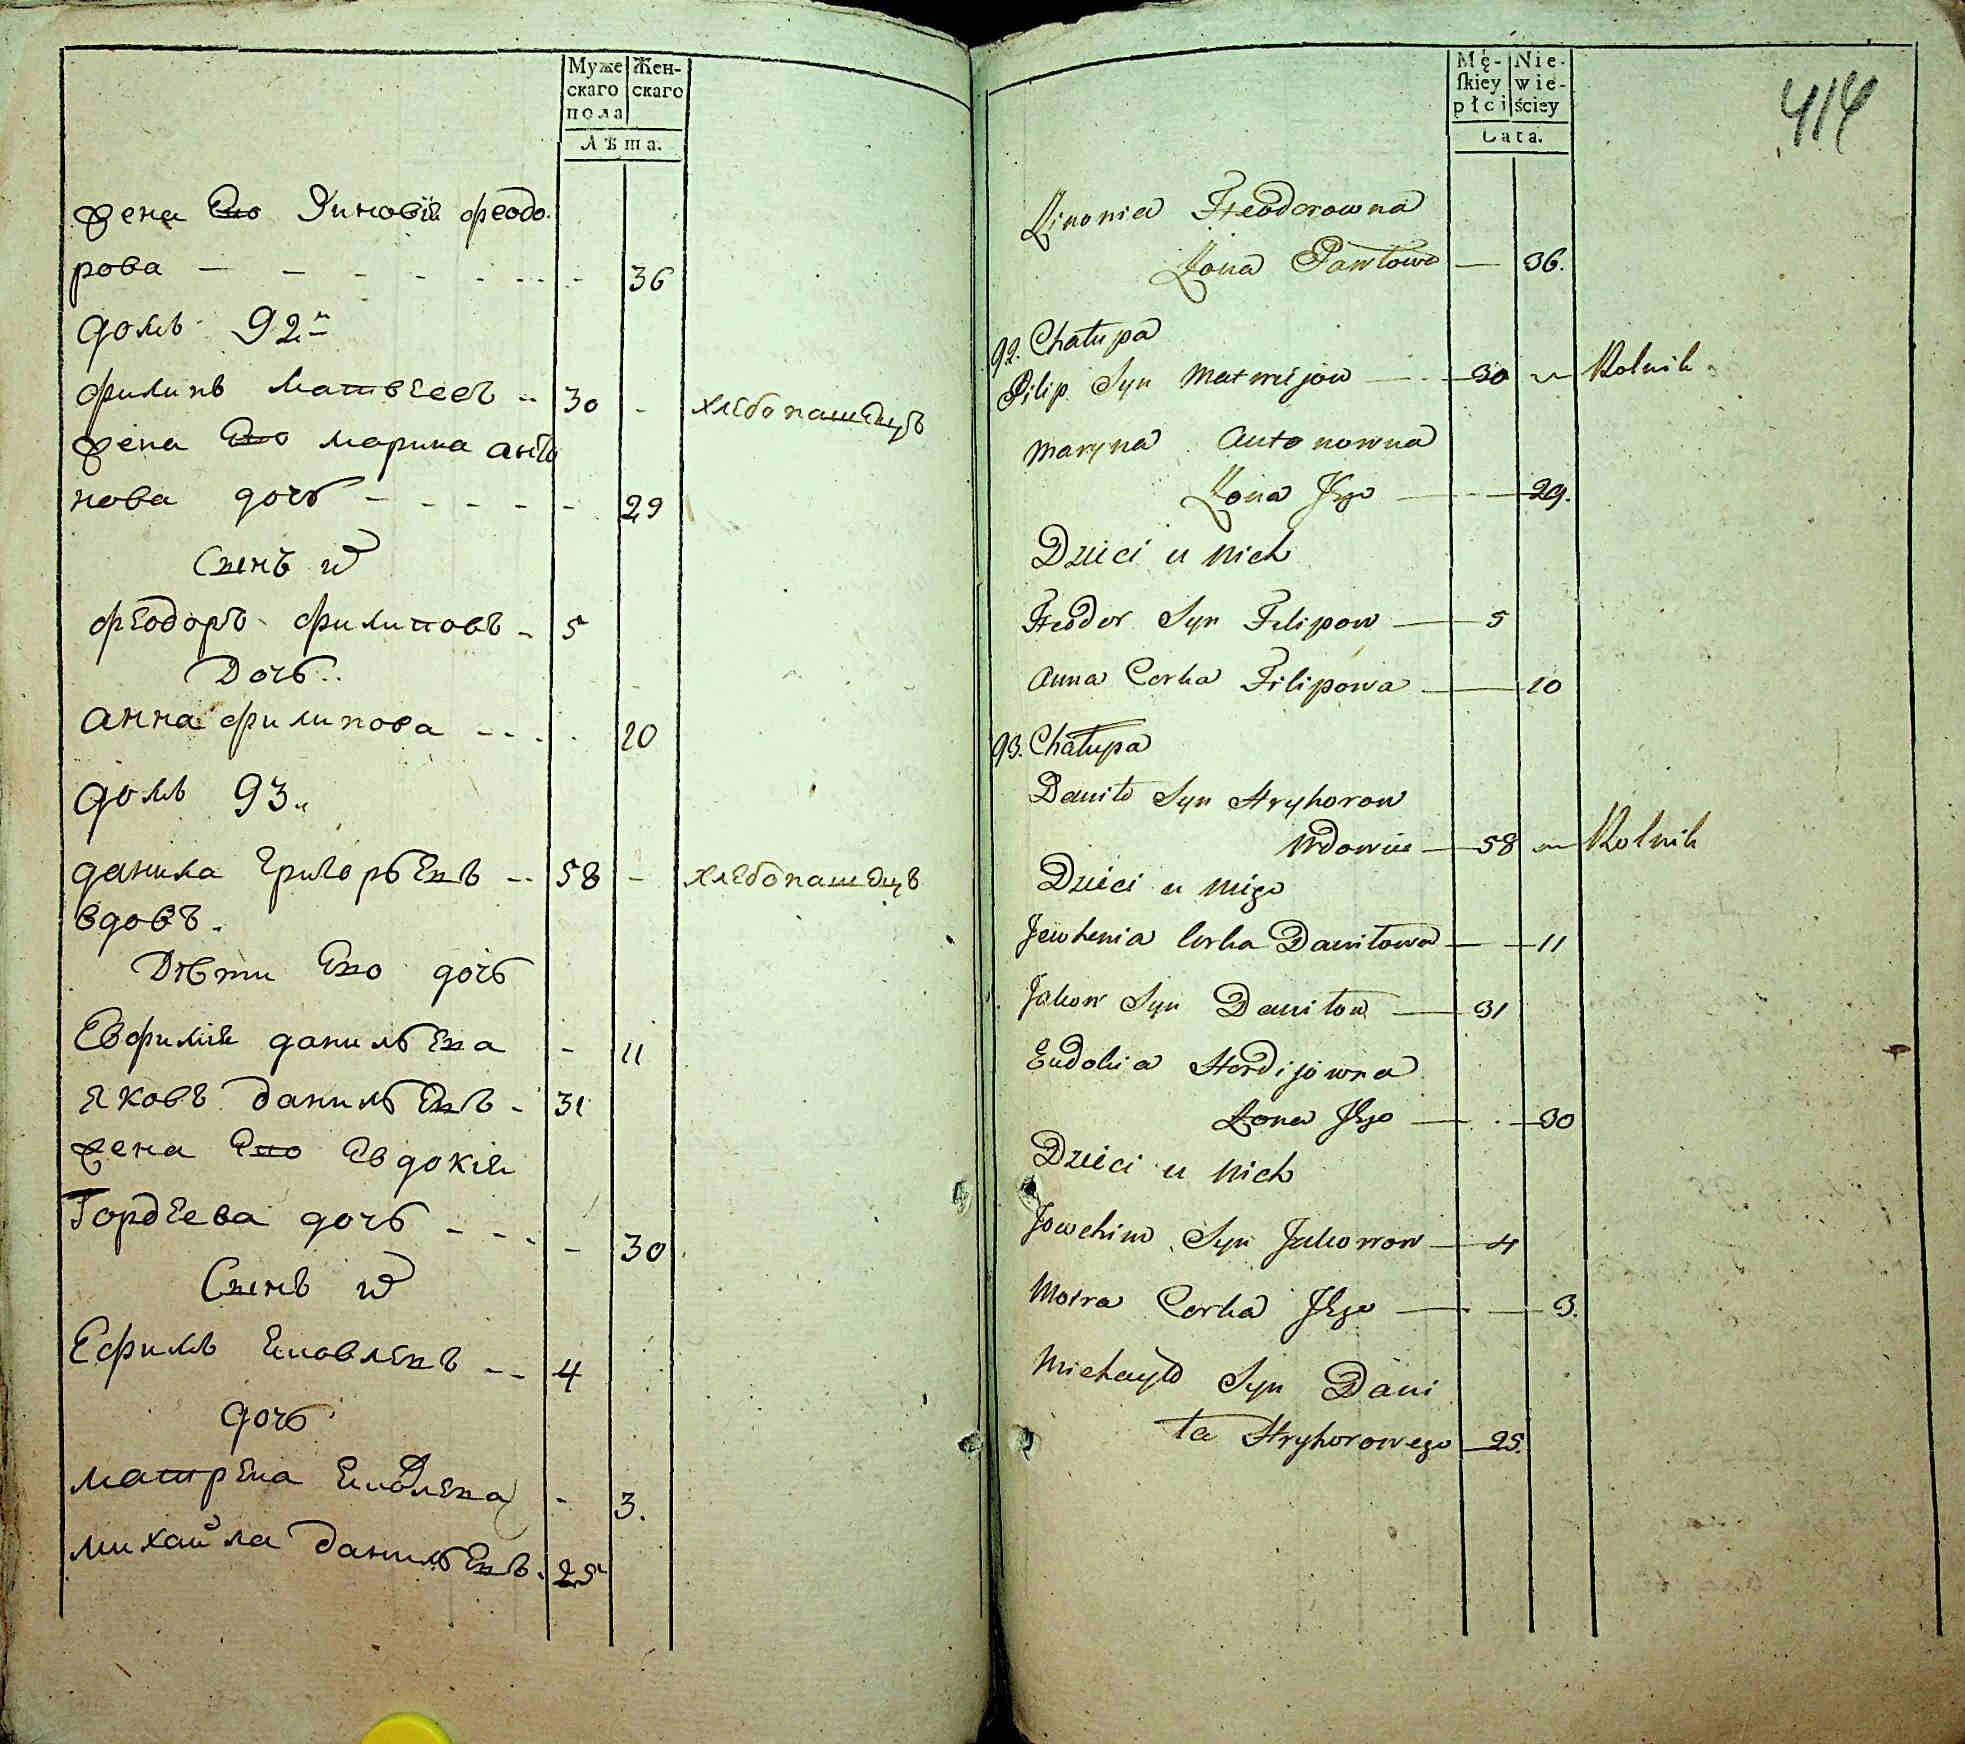 Муже Жен-
скаго скаго
пола
Лѣта.
жена Его Зиновія феодо
рова - - - - - - - 36
домъ 92й
филипъ Матвеевъ - 30 - хлебопашецъ
жена Его марина анто
нова дочь - - - - - 29
Сынъ и
феодоръ филиповъ - 5
Дочь
анна филипова - - - 10
домъ 93й
данила Григорьевъ - 58 - хлебопашецъ
вдовъ.
Дѣти Его дочь
Евфимія данильева - 11
яковъ данильевъ - 31
жена Его Евдокія
Гордеева дочь - - - - 30
Сынъ и
Ефимъ яковлевъ - - 4
дочь
матрена яковлева - 3.
михайла данильевъ. 25
Mę- Nie-
ſkiey wie-
płci ściey
Lata.
414
Zinonia Fteodorowna
Żona Pawłowa — 36.
92. Chałupa
Filip Syn Matwiejow — 30 Rolnik
Maryna Antonowna
Żona Jego — 29.
Dzieci u nich
Fteodor Syn Filipow — 5
Anna Corka Filipowa — 10
93. Chałupa
Daniło Syn Hryhorow
Wdowiec — 58 Rolnik
Dzieci u niego
Jewhenia Corka Daniłowa — 11
Jakow Syn Daniłow — 31
Eudokia Hordijowna
Żona Jego — 30
Dzieci u nich
Jowchim Syn Jakowow — 4
Motra Corka Jego — 3.
Michayło Syn Dani
ła Hryhorowego — 25.